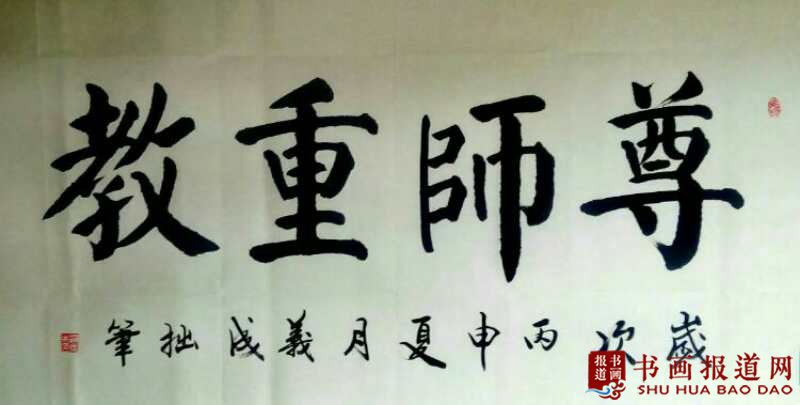 尊師重教
歲次丙申夏月義成拙筆
报道
书画
书画报道网
SHU HUA BAO DAO